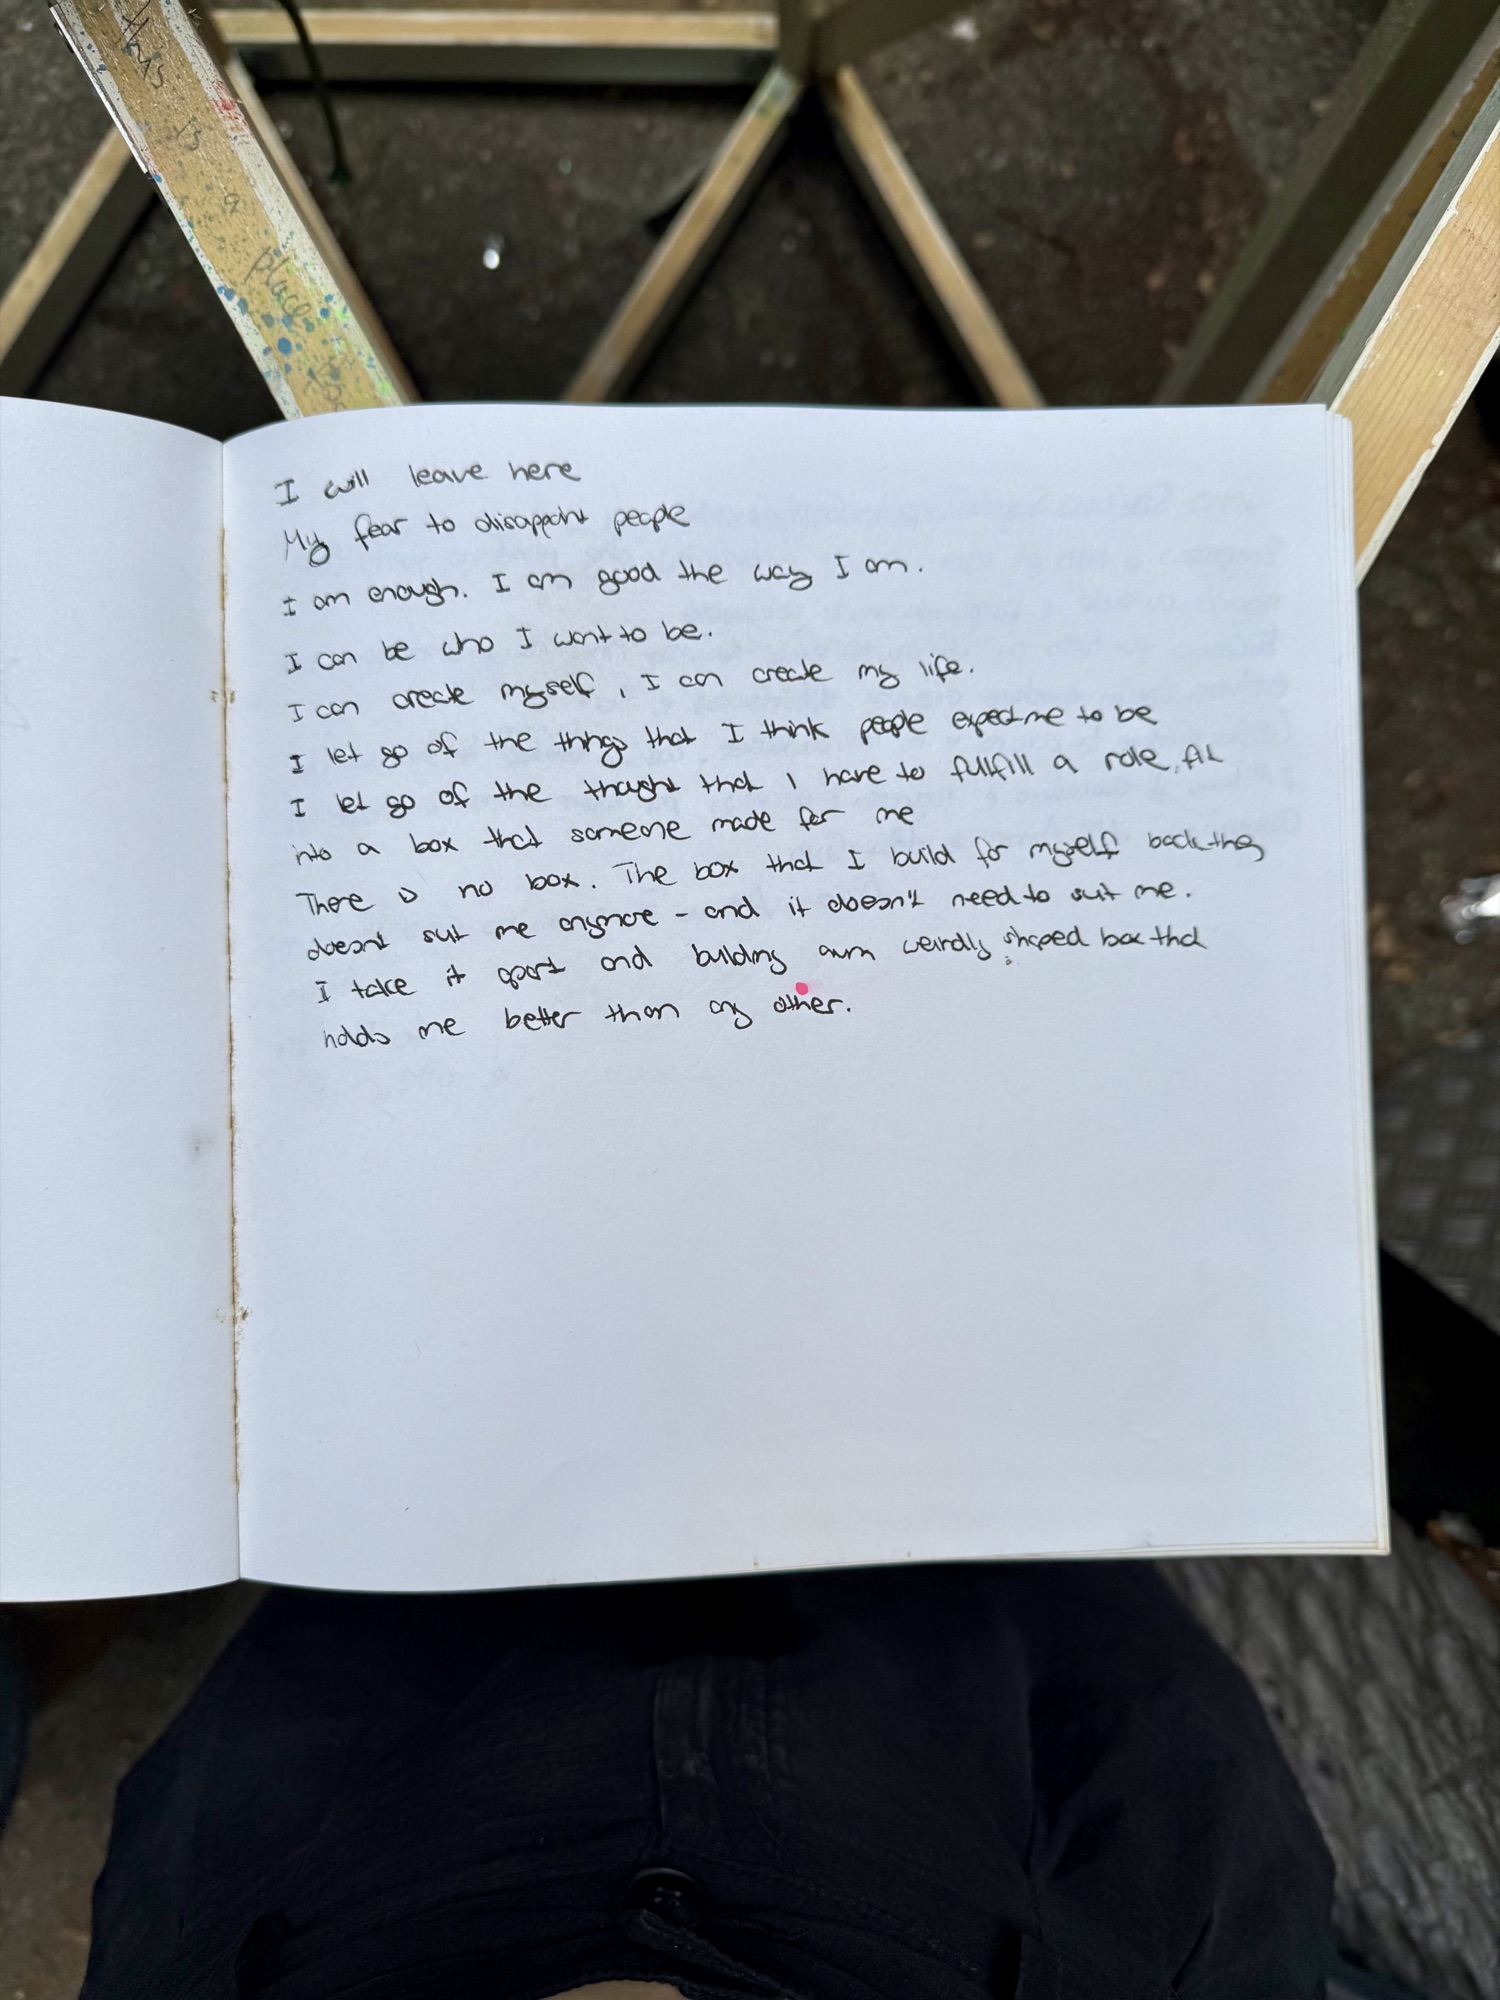 this
is
a
place
I will leave here
My fear to disappoint people
I am enough. I am good the way I am.
I can be who I want to be.
I can create myself, I can create my life.
I let go of the things that I think people expect me to be
I let go of the thought that I have to fulfill a role, fit
into a box that someone made for me
There is no box. The box that I build for myself back then
doesn't suit me anymore - and it doesn't need to suit me.
I take it apart and building weirdly shaped box that
holds me better than any other.